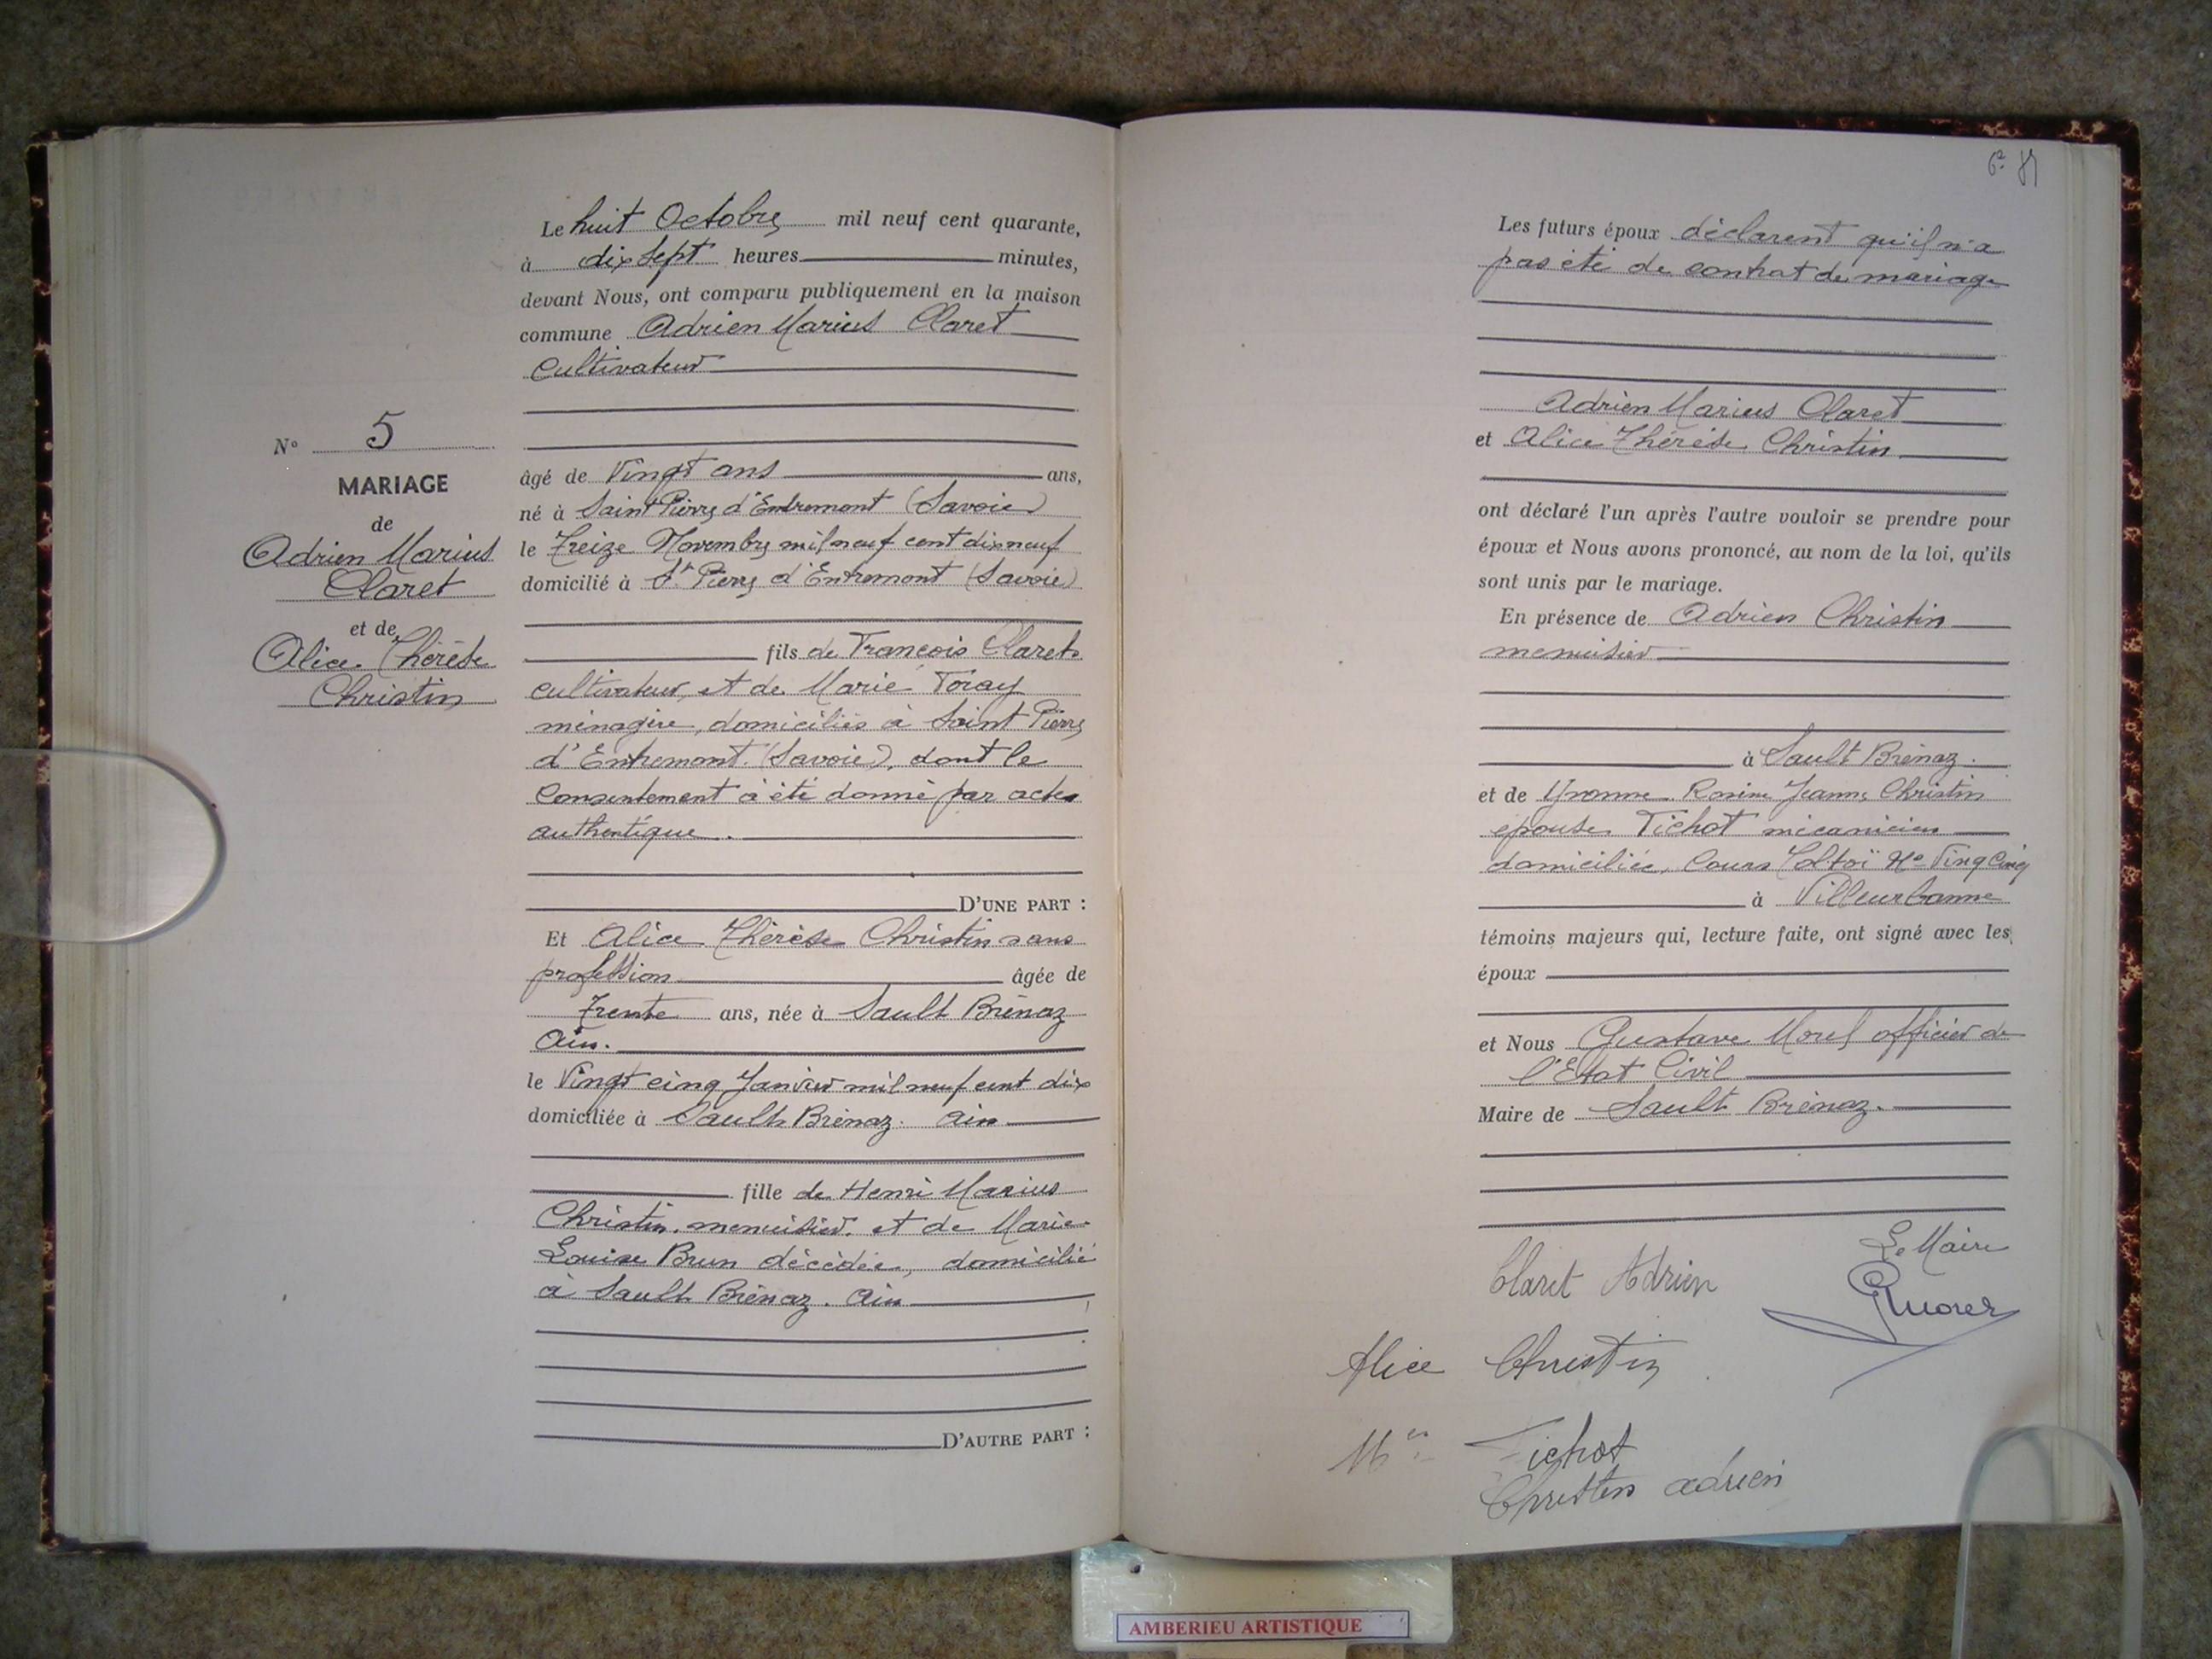 N° 5
MARIAGE
de
Adrien Marius
Claret
et de
Alice Thérèse
Christin
Le huit Octobre mil neuf cent quarante,
à dix sept heures minutes,
devant Nous, ont comparu publiquement en la maison
commune Adrien Marius Claret
Cultivateur
âgé de Vingt ans ans,
né à Saint Pierre d'Entremont (Savoie)
le Treize Novembre mil neuf cent dix neuf
domicilié à St Pierre d'Entremont (Savoie)
fils de François Claret
cultivateur, et de Marie
ménagère, domiciliés à Saint Pierre
d'Entremont (Savoie), dont le
Consentement à été donné par actes
authentique.
D'UNE PART :
Et Alice Thérèse Christin sans
profession âgée de
Trente ans, née à Sault Brénaz
Ain.
le Vingt cinq Janvier mil neuf cent dix
domiciliée à Sault Brénaz. Ain
fille de Henri Marius
Christin, menuisier, et de Marie
Louise Brun décédée, domicilié
à Sault Brénaz. Ain
D'AUTRE PART :
Les futurs époux déclarent qu'il n'a
pas été de contrat de mariage
Adrien Marius Claret
et Alice Thérèse Christin
ont déclaré l'un après l'autre vouloir se prendre pour
époux et Nous avons prononcé, au nom de la loi, qu'ils
sont unis par le mariage.
En présence de Adrien Christin
menuisier
à Sault Brénaz.
et de Yvonne Rosine Jeanne Christin
épouse Tichot mécanicien
domiciliée, Cours Tolstoï No Vingt Cinq
à Villeurbanne
témoins majeurs qui, lecture faite, ont signé avec les
époux
et Nous Gustave Morel officier de
l'Etat Civil
Maire de Sault Brénaz.
Le Maire
Claret Adrien
GMorel
Alice Christin
Tichot
Christin adrien
AMBERIEU ARTISTIQUE